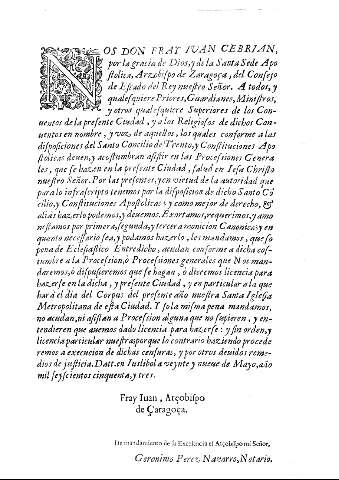 NOS DON FRAY IUAN CEBRIAN,
por la gracia de Dios, y de la Santa Sede Apo
stolica, Arzobispo de Zaragoça, del Consejo
de Estado del Rey nuestro Señor. A todos, y
qualesquiere Priores, Guardianes, Ministros,
y otros qualesquiere Superiores de los Con-
uentos de la presente Ciudad, y a los Religiosos de dichos Con-
uentos en nombre, y voz, de aquellos, los quales conforme a las
disposiciones del Santo Concilio de Trento, y Constituciones Apo
stolicas deuen, y acostumbran asistir en las Procesiones Genera
les, que se hazen en la presente Ciudad, salud en Iesu Christo
nuestro Señor. Por las presentes, y en virtud de la autoridad que
para lo infrascripto tenemos por la disposicion de dicho Santo Cõ
cilio, y Constituciones Apostolicas: y como mejor de derecho, &
aliàs hazerlo podemos, y deuemos. Exortamos, requerimos, y amo
nestamos por primera, segunda, y tercera monicion Canonica: y en
quanto necesario sea, y podamos hazerlo, les mandamos, que so
pena de Eclesiastico Entredicho, acudan conforme a dicha cos-
tumbre a la Procesion, ò Procesiones generales que Nos man-
daremos, ò dispusieremos que se hagan, ò dieremos licencia para
hazerse en la dicha, y presente Ciudad, y en particular a la que
harà el dia del Corpus del presente año nuestra Santa Iglesia
Metropolitana de esta Ciudad. Y so la misma pena mandamos,
no acudan, ni asistan a Procesion alguna que no supieren, y en-
tendieren que auemos dado licencia para hazerse: y sin orden, y
licencia particular nuestra; por que lo contrario haziendo procede
remos a execucion de dichas censuras, y por otros deuidos reme-
dios de justicia. Datt. en Iuslibol a veynte y nueue de Mayo, año
mil seyscientos cinquenta, y tres.
Fray Iuan, Arçobispo
de Çaragoça.
De mandamiento de su Excelencia el Arçobispo mi Señor,
Geronimo Perez Navarro, Notario.